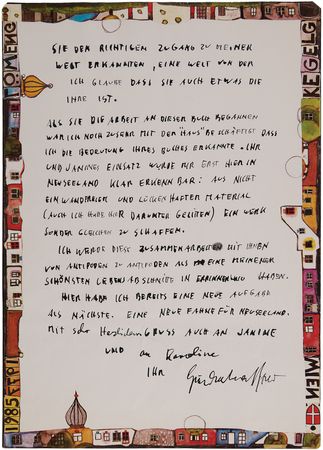 KEGELG
SIE DEN RICHTIGEN ZUGANG ZU MEINER
WELT ERKANNTEN, EINE WELT VON DER
ICH GLAUBE DASS SIE AUCH ETWAS DIE
IHRE IST.
ALS SIE DIE ARBEIT AN DIESER BUCH BEGANNEN
WAR ICH NOCH ZUSEHR MIT DEN "HAUS" BESCHÄFTIGT DASS
ICH DIE BEDEUTUNG IHRES BUCHES ERKANNTE. IHR
UND JANINES EINSATZ WURDE MIR ERST HIER IN
NEUSEELAND KLAR ERKENNBAR: AUS NICHT
EINWANDFREIEN UND LÜCKENHAFTER MATERIAL
(AUCH ICH HABE HIER DARUNTER GELITTEN) EIN WERK
SONDER GLEICHEN ZU SCHAFFEN.
ICH WERDE DIESE ZUSAMMENARBEIT MIT IHNEN
VON ANTIPODEN ZU ANTIPODEN ALS EINE MEINER
SCHÖNSTEN LEBENSABSCHNITTE IN ERINNERUNG HABEN.
HIER HABE ICH BEREITS EINE NEUE AUFGABE
ALS NÄCHSTE. EINE NEUE FAHNE FÜR NEUSEELAND.
MIT SEHR HERZLICHEN GRUSS AUCH AN JANINE
UND an Karoline
IHR
1985
WIEN